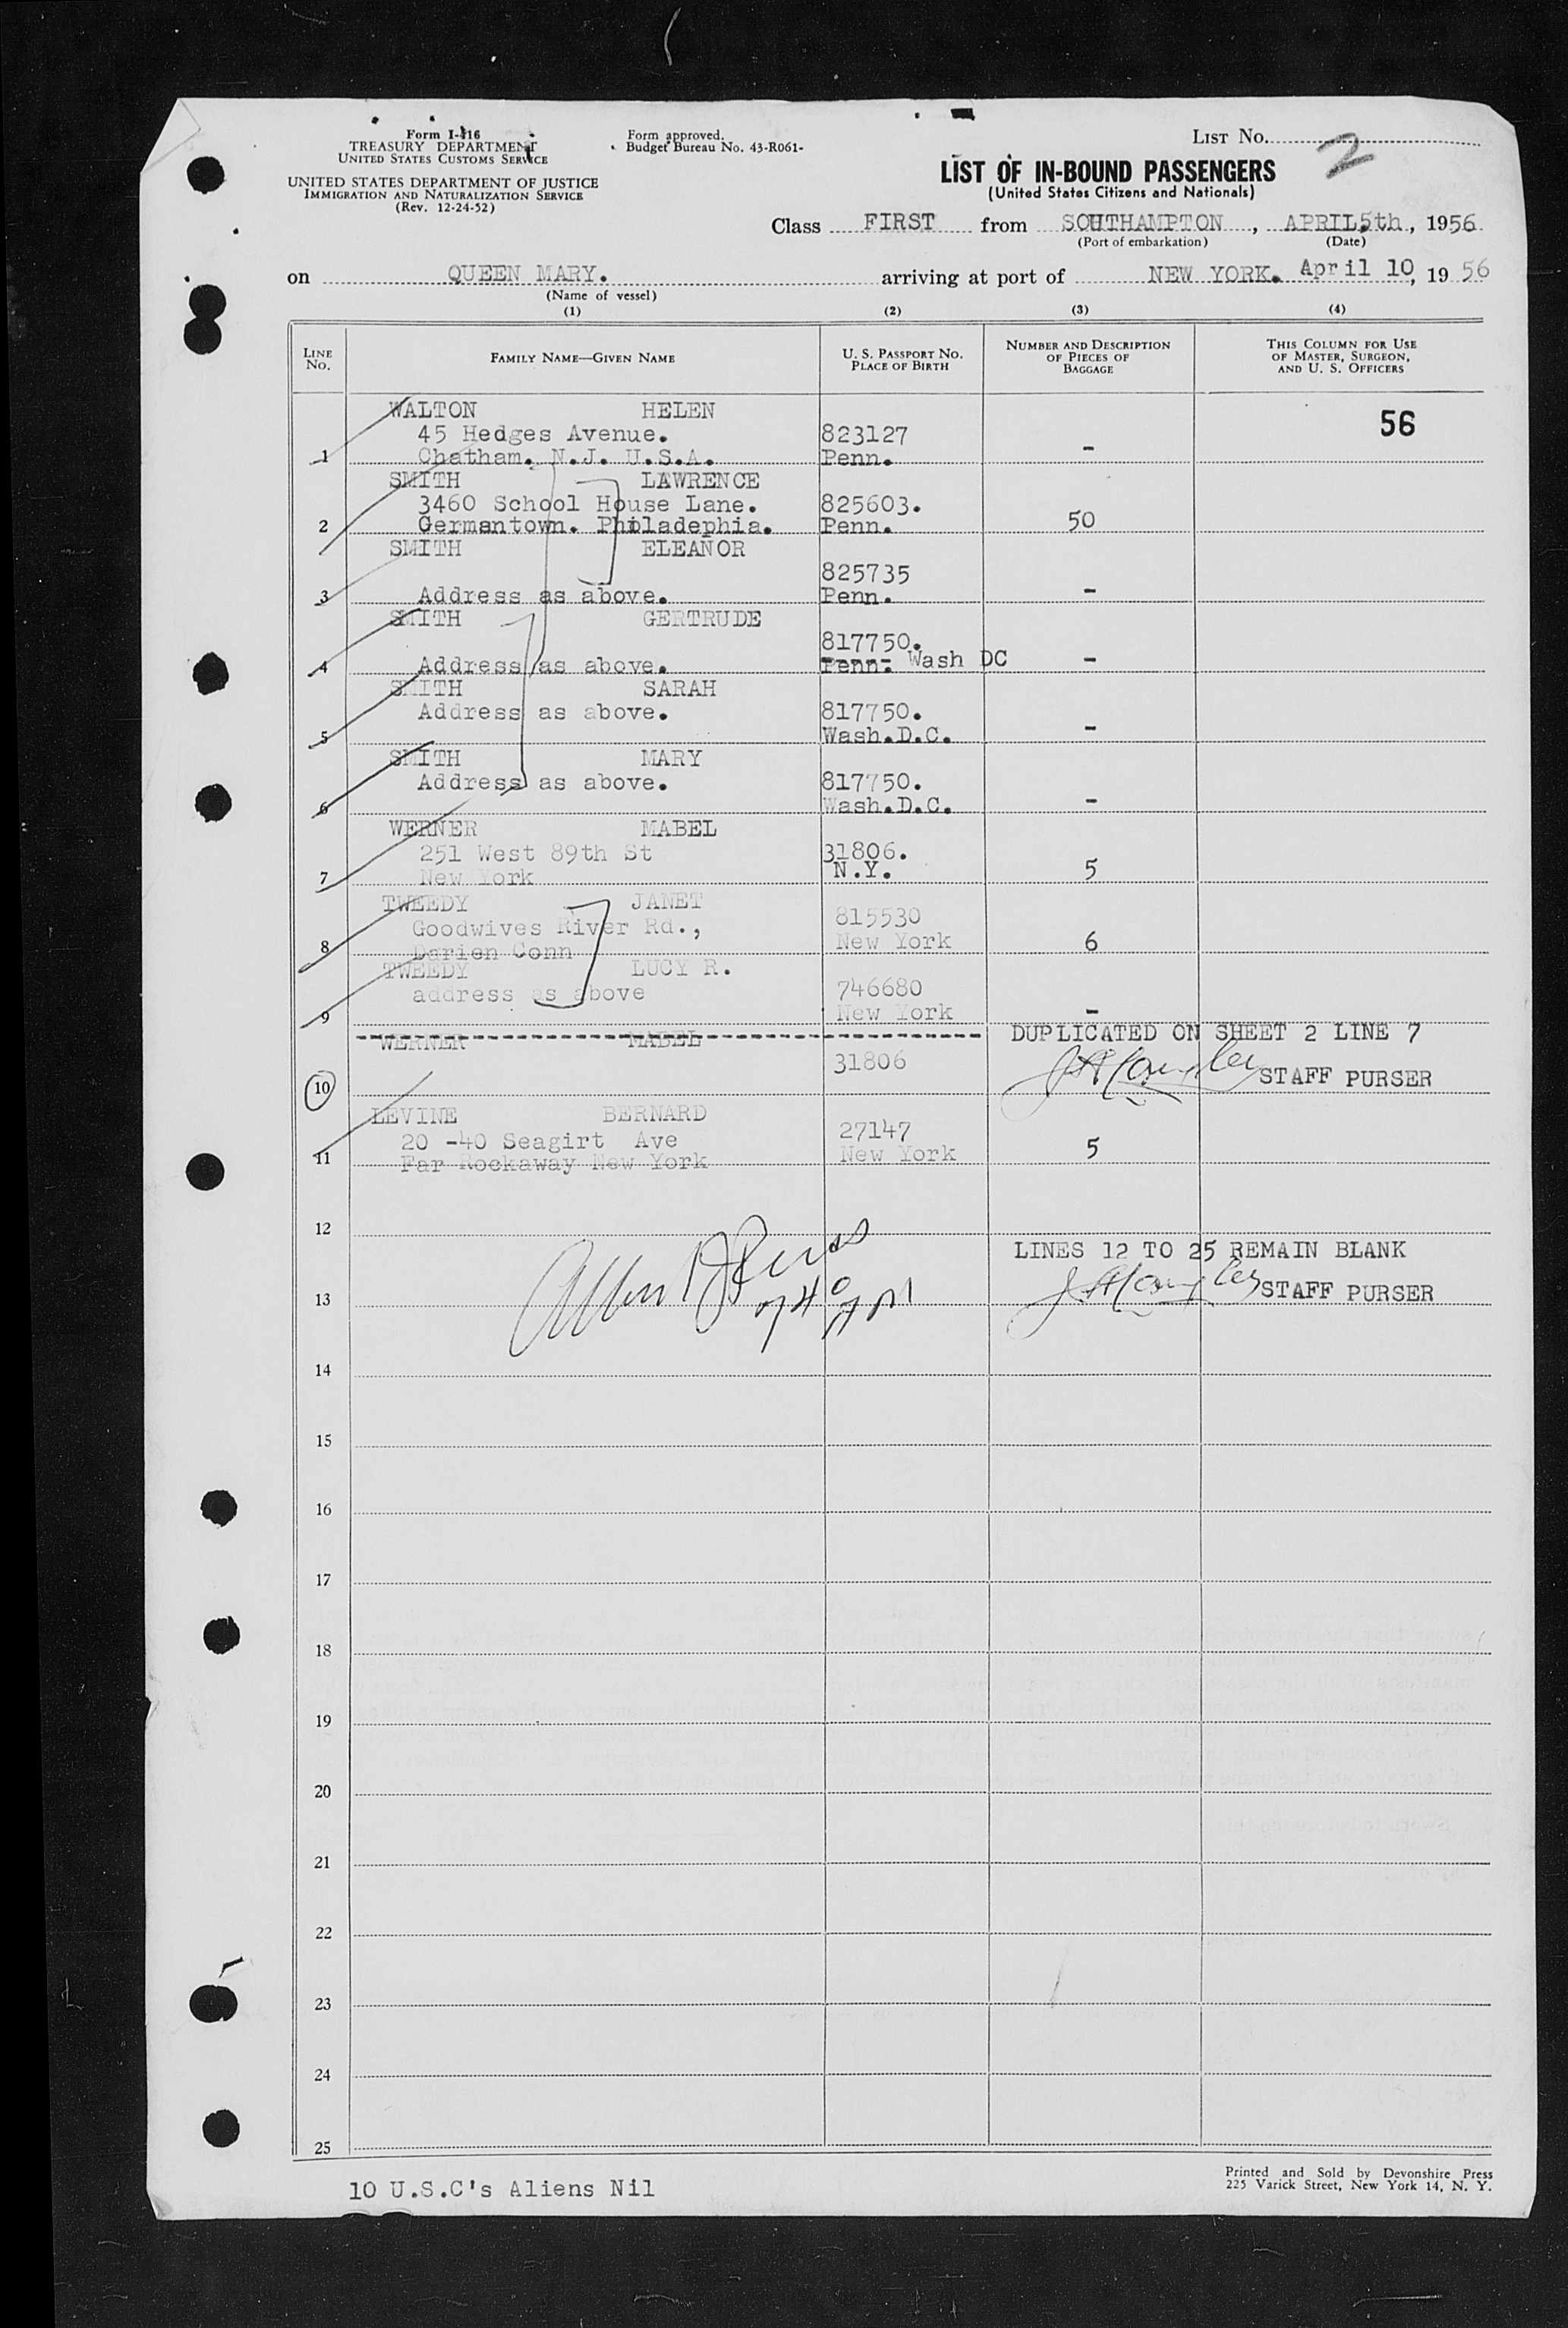 Form I-416
TREASURY DEPARTMENT
UNITED STATES CUSTOMS SERVICE
UNITED STATES DEPARTMENT OF JUSTICE
IMMIGRATION AND NATURALIZATION SERVICE
(Rev. 12-24-52)
Form approved.
Budget Bureau No. 43-R061-
LIST NO. 2
LIST OF IN-BOUND PASSENGERS
(United States Citizens and Nationals)
Class FIRST from SOUTHAMPTON, APRIL 5th, 1956
(Port of embarkation) (Date)
on QUEEN MARY. arriving at port of NEW YORK. April 10, 1956
(Name of vessel)
(1) (2) (3) (4)
LINE NO. FAMILY NAME—GIVEN NAME U. S. PASSPORT NO. PLACE OF BIRTH NUMBER AND DESCRIPTION OF PIECES OF BAGGAGE THIS COLUMN FOR USE OF MASTER, SURGEON, AND U. S. OFFICERS
WALTON HELEN 56
45 Hedges Avenue. 823127
1 Chatham. N.J. U.S.A. Penn. -
SMITH LAWRENCE
3460 School House Lane. 825603.
2 Germantown. Philadephia. Penn. 50
SMITH ELEANOR
825735
3 Address as above. Penn. -
SMITH GERTRUDE
817750.
4 Address as above. Penn. Wash DC -
SMITH SARAH
Address as above. 817750.
5 Wash.D.C. -
SMITH MARY
Address as above. 817750.
6 Wash.D.C. -
WERNER MABEL
251 West 89th St 31806.
7 New York N.Y. 5
TWEEDY JANET
Goodwives River Rd., 815530
8 Darien Conn New York 6
TWEEDY LUCY R.
address as above 746680
9 New York -
WERNER MABEL DUPLICATED ON SHEET 2 LINE 7
31806
10 STAFF PURSER
LEVINE BERNARD
20 -40 Seagirt Ave 27147
11 Far Rockaway New York New York 5
12
LINES 12 TO 25 REMAIN BLANK
13 STAFF PURSER
14
15
16
17
18
19
20
21
22
23
24
25
10 U.S.C's Aliens Nil
Printed and Sold by Devonshire Press
225 Varick Street, New York 14, N. Y.